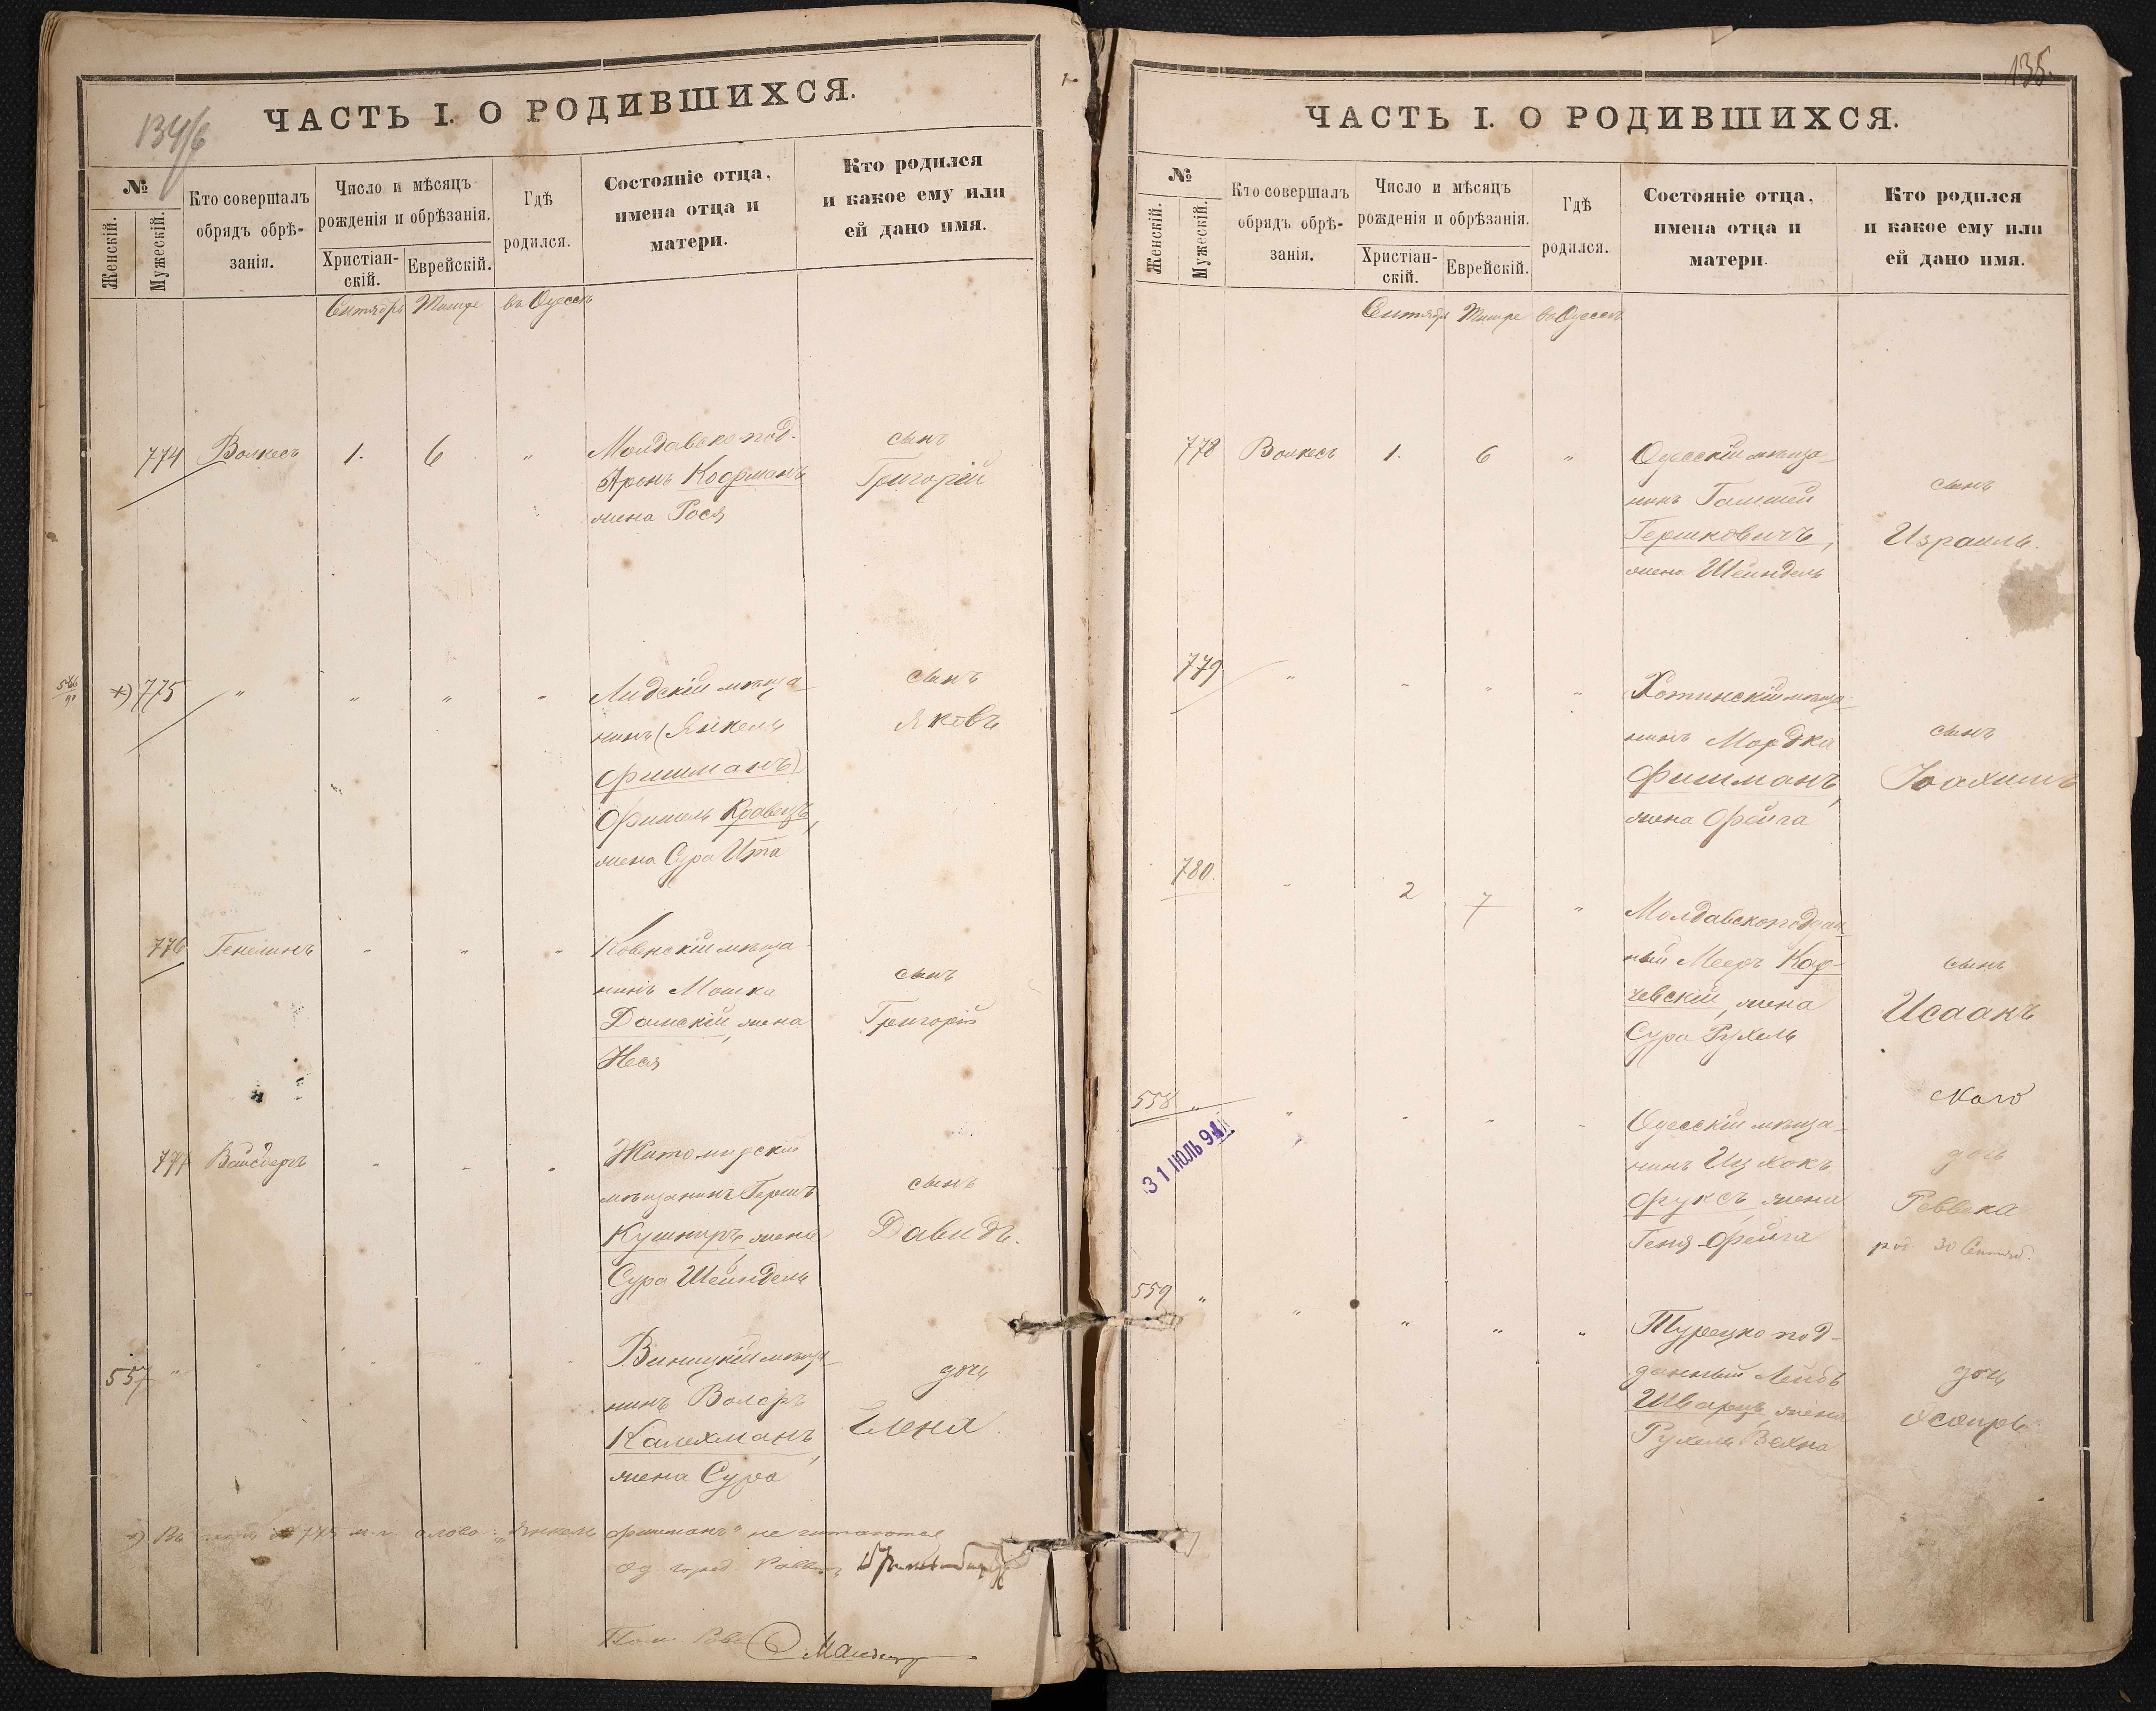 134/б
ЧАСТЬ I. О РОДИВШИХСЯ.
№
Женскій.
Мужескій.
Кто совершалъ
обрядъ обрѣ-
занія.
Число и мѣсяцъ
рожденія и обрѣзанія.
Христіан-
скій.
Еврейскій.
Гдѣ
родился.
Состояніе отца,
имена отца и
матери.
Кто родился
и какое ему или
ей дано имя.
Сентябрь Тишре въ Одессѣ
774 Волкесъ 1. 6 "
Молдавскопод.
Аронъ Кофманъ
жена Рося
сынъ
Григорій
546/90 *) 775 " " " "
Лидскій мѣща-
нинъ (Янкель
Фишманъ)
Фишель Кравецъ,
жена Сура Ита
сынъ
Яковъ
776 Генелинъ " " "
Ковенскій мѣща-
нинъ Мошка
Дамскій, жена
Неся
сынъ
Григорій
777 Вайсбергъ " " "
Житомирскій
мѣщанинъ Гершъ
Кушниръ, жена
Сура Шейндель
сынъ
Давидъ.
557 " " " "
Виницкій мѣща-
нинъ Волфъ
Калехманъ,
жена Сура
дочь
Елена.
*) Въ № 775 м. п. слово: "Янкель Фишманъ" не читаются
Од. город. Раввинъ
Пом. Рав.
135.
ЧАСТЬ I. О РОДИВШИХСЯ.
№
Женскій.
Мужескій.
Кто совершалъ
обрядъ обрѣ-
занія.
Число и мѣсяцъ
рожденія и обрѣзанія.
Христіан-
скій.
Еврейскій.
Гдѣ
родился.
Состояніе отца,
имена отца и
матери.
Кто родился
и какое ему или
ей дано имя.
Сентябрь Тишре въ Одессѣ
778 Волкесъ 1. 6 "
Одесскій мѣща-
нинъ Гамшей
Гершковичъ,
жена Шейндель
сынъ
Израиль.
779 " " " "
Хотинскій мѣща-
нинъ Мордка
Фишманъ,
жена Фейга
сынъ
Іоахимъ
780. " 2 7 "
Молдавскоподдан-
ный Мееръ Кар-
чевскій, жена
Сура Рухель
сынъ
Исаакъ
558 " " " " "
31 ИЮЛЬ 94
Одесскій мѣща-
нинъ Ицхокъ
Фуксъ, жена
Геня-Фейга
дочь
Реввека
род. 30 Сентяб.
559 " " " " "
Турецкопод-
данный Лейбъ
Шварцъ, жена
Рухель Вехна
дочь
Эсѳирь